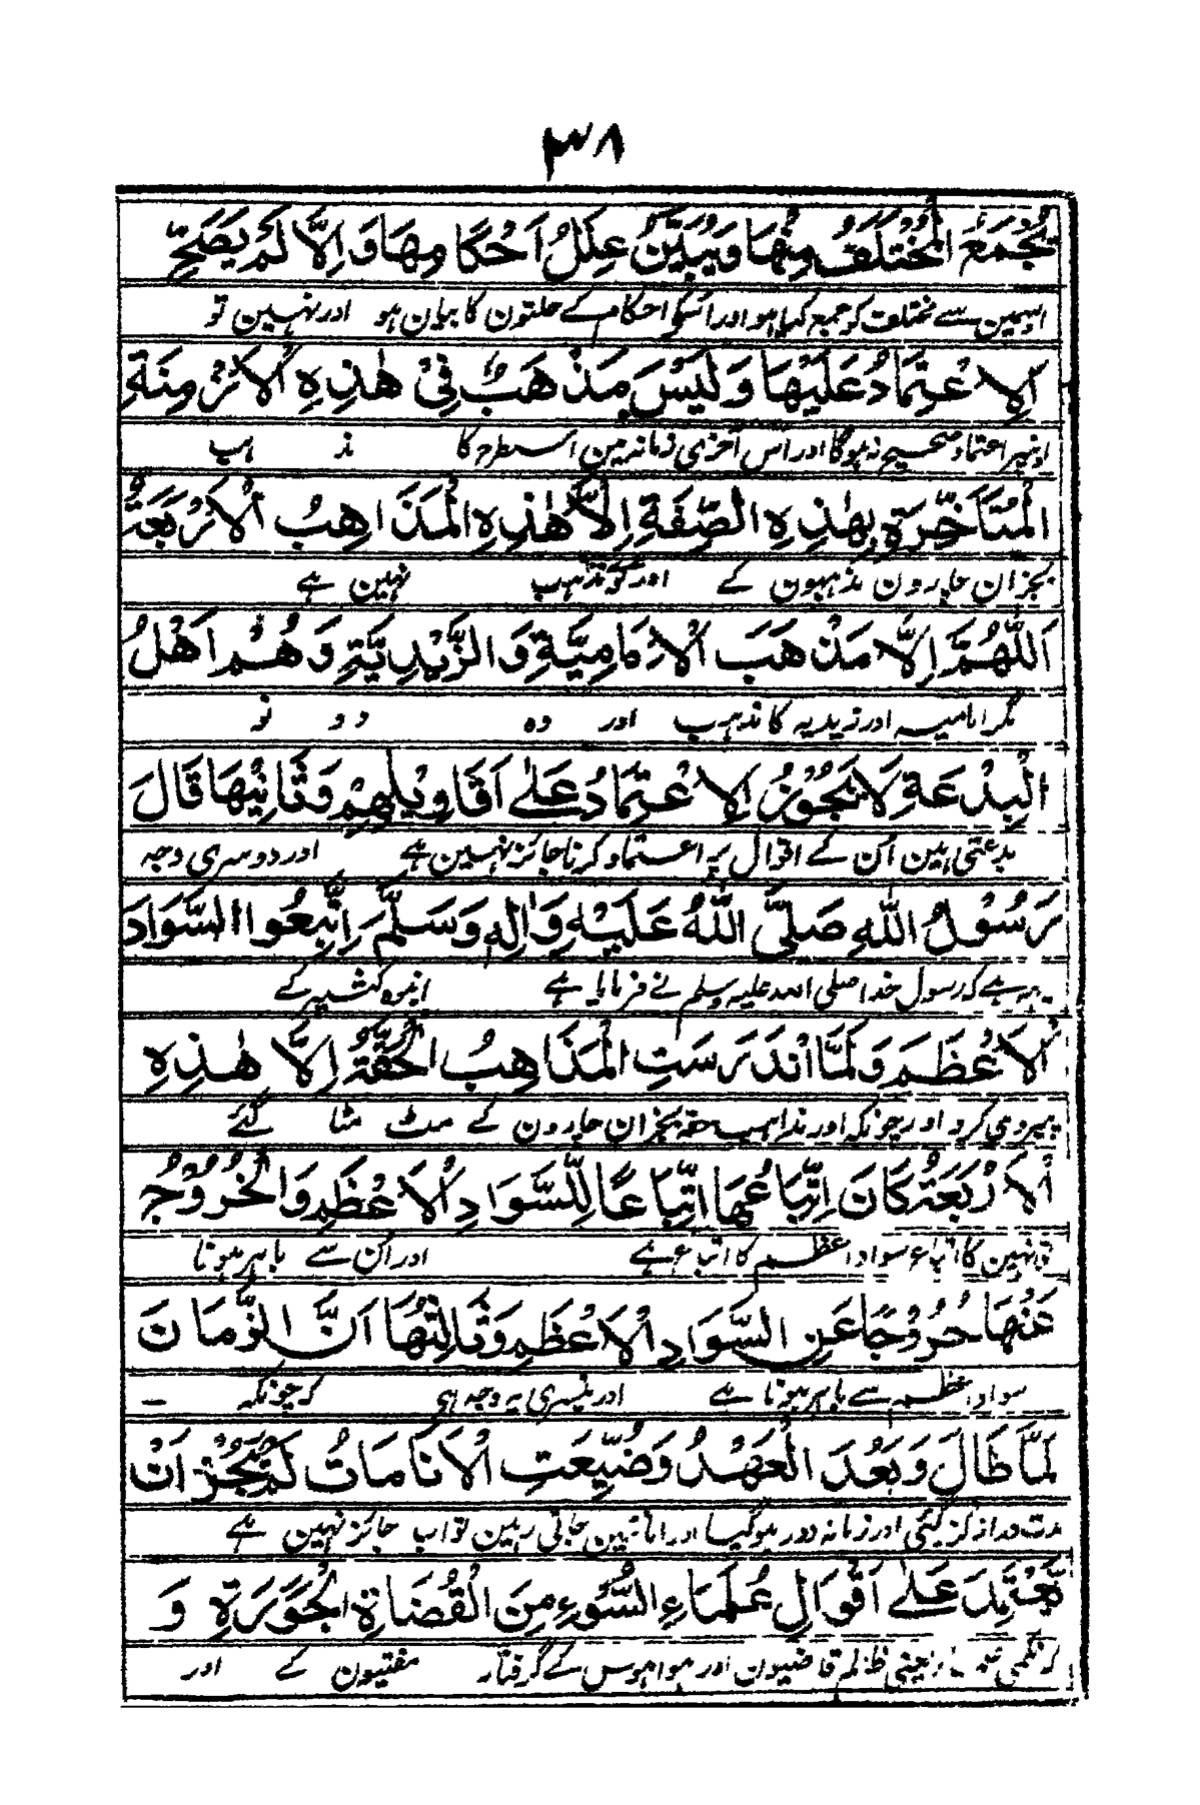 ٣٨
يُجْمَعَ الْمُخْتَلَفُ مِنْهَا وَيُبَيَّنُ عِلَلُ اَحْكَامِهَا وَ اِلَّا لَمْ يَصِحِّ
اوسمین سے مختلف کو جمع کیا ہو اور اسکے احکام کے علتون کا بیان ہو اور نہین تو
الِاعْتِمَادُ عَلَيْهَا وَلَيْسَ مَذْهَبٌ فِيْ هٰذِهِ الْاَزْمِنَةِ
اونپر اعتماد صحیح نہوگا اور اس آخری زمانہ مین اسطرح کا مذ ہب
الْمُتَاَخِّرَةِ بِهٰذِهِ الصِّفَةِ اِلَّا هٰذِهِ الْمَذَاهِبُ الْاَرْبَعَةُ
بجز ان چارون مذہبون کے اور کوئی مذہب نہین ہے
اَللّٰهُمَّ اِلَّا مَذْهَبَ الْاِمَامِيَّةِ وَالزَّيْدِيَّةِ وَهُمْ اَهْلُ
مگر امامیہ اور زیدیہ کا مذہب اور وہ دو نو
الْبِدْعَةِ لَا يَجُوْزُ الِاعْتِمَادُ عَلٰى اَقَاوِيْلِهِمْ وَثَانِيْهَا قَالَ
بدعتی ہین اُن کے اقوال پر اعتماد کرنا جائز نہین ہے اور دوسری وجہ
رَسُوْلُ اللّٰهِ صَلَّى اللّٰهُ عَلَيْهِ وَاٰلِهٖ وَسَلَّمَ اِتَّبِعُوا السَّوَادَ
یہ ہے کہ رسول خدا صلی اللہ علیہ وسلم نے فرمایا ہے انبوہ کثیر کے
الْاَعْظَمَ وَلَمَّا انْدَرَسَتِ الْمَذَاهِبُ الْحَقَّةُ اِلَّا هٰذِهِ
پیروی کرو اور چونکہ اور مذاہب حقہ بجز ان چارون کے مٹ مٹا گئے
الْاَرْبَعَةَ كَانَ اِتِّبَاعُهَا اتِّبَاعًا لِلسَّوَادِ الْاَعْظَمِ وَالْخُرُوْجُ
تو انہین کا اتباع سواد اعظم کا اتباع ہے اور اُن سے باہر ہونا
عَنْهَا خُرُوْجًا عَنِ السَّوَادِ الْاَعْظَمِ وَثَالِثُهَا اَنَّ الزَّمَانَ
سواد اعظم سے باہر ہونا ہے اور تیسری یہ وجہ ہی کہ چونکہ
لَمَّا طَالَ وَبَعُدَ الْعَهْدُ وَضُيِّعَتِ الْاَمَانَاتُ لَمْ يَجُزْ اَنْ
مدت دراز گزر گئی اور زمانہ دور ہو گیا اور امانتین جاتی رہین تو اب جائز نہین ہے
يُعْتَمَدَ عَلٰى اَقْوَالِ عُلَمَاءِ السُّوْءِ مِنَ الْقُضَاةِ الْجَوَرَةِ وَ
یعنی ظالم قاضیون اور ہوا ہوس کے گرفتار مفتیون کے اور